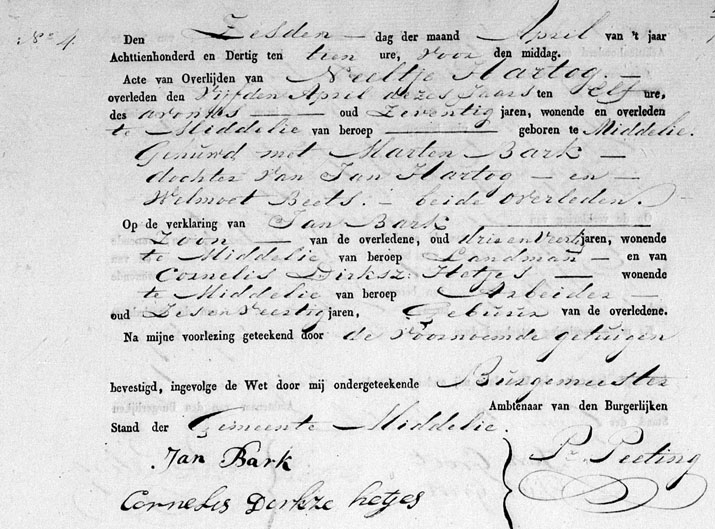 N° 4. Den Zesden dag der maand April van 't jaar
Achttienhonderd en Dertig ten tien ure, voor den middag.
Acte van Overlijden van Neeltje Hartog.
overleden den Vijfden April dezes Jaars ten elf ure,
des avonds oud Zeventig jaren, wonende en overleden
te Middelie van beroep geboren te Middelie.
Gehuwd met Marten Bark
dochter van Jan Hartog en
Welmoet Beets. beide overleden.
Op de verklaring van Jan Bark
Zoon van de overledene, oud drie en veertig jaren, wonende
te Middelie van beroep Landman en van
Cornelis Dirksz: Hetjes wonende
te Middelie van beroep Arbeider
oud Zes en veertig jaren, Gebuur van de overledene.
Na mijne voorlezing geteekend door de voornoemde getuigen
bevestigd, ingevolge de Wet door mij ondergeteekende Burgemeester
Ambtenaar van den Burgerlijken
Stand der Gemeente Middelie.
Jan Bark
Pr. Peeting
Cornelis Derkze hetjes